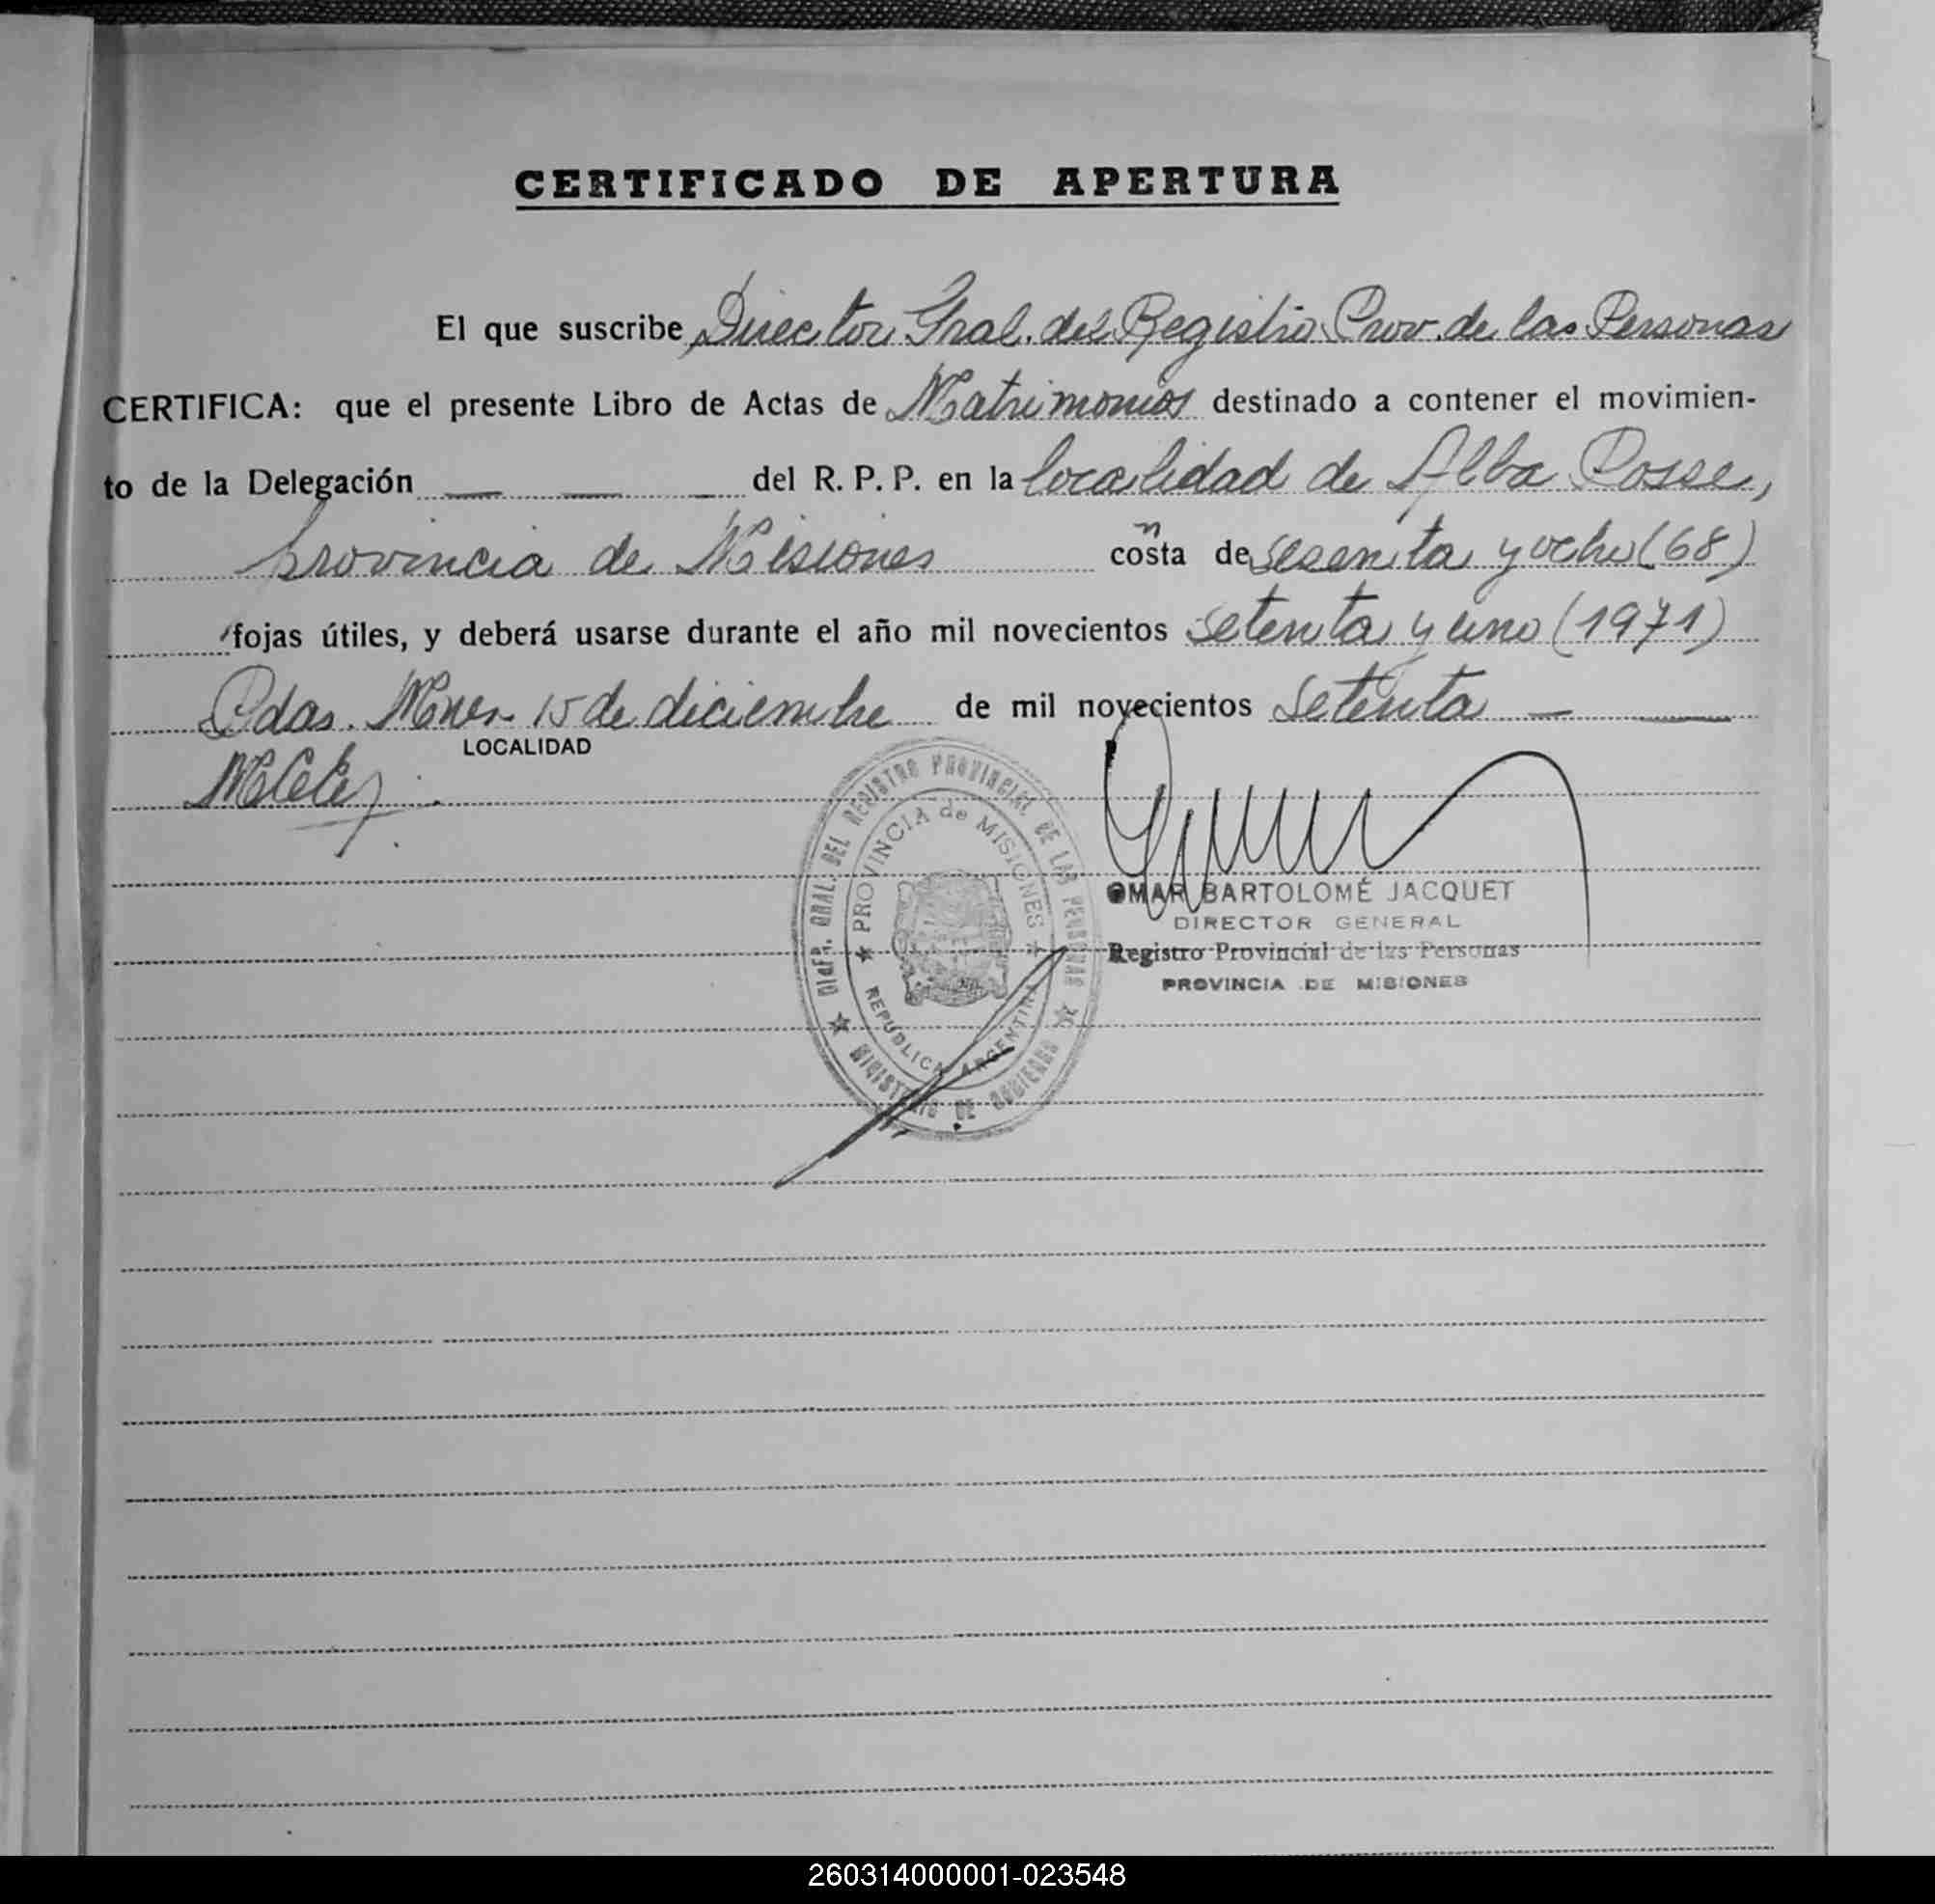 CERTIFICADO DE APERTURA
El que suscribe Director Gral. del Registro Prov. de las Personas
CERTIFICA: que el presente Libro de Actas de Matrimonios destinado a contener el movimien-
to de la Delegación — — — del R. P. P. en la localidad de Alba Posse,
provincia de Misiones consta de sesenta y ocho (68)
fojas útiles, y deberá usarse durante el año mil novecientos setenta y uno (1971)
Pdas. Mnes. 15 de diciembre de mil novecientos setenta — —
LOCALIDAD
DIREC. GRAL. DEL REGISTRO PROVINCIAL DE LAS PERSONAS
★ MINISTERIO DE GOBIERNO ★
★ PROVINCIA de MISIONES ★
REPUBLICA ARGENTINA
OMAR BARTOLOMÉ JACQUET
DIRECTOR GENERAL
Registro Provincial de las Personas
PROVINCIA DE MISIONES
260314000001-023548